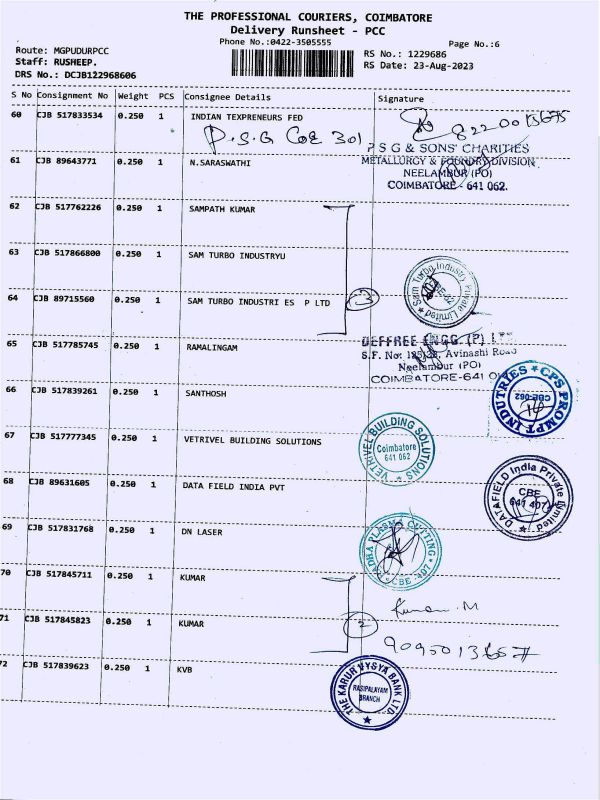 THE PROFESSIONAL COURIERS, COIMBATORE
Delivery Runsheet - PCC
Phone No.:0422-3505555
Page No.:6
Route: MGPUDURPCC
Staff: RUSHEEP.
DRS No.: DCJB122968606
RS No.: 1229686
RS Date: 23-Aug-2023
S No Consignment No Weight PCS Consignee Details Signature
60 CJB 517833534 0.250 1 INDIAN TEXPRENEURS FED
P.S.G COE 301
P S G & SONS' CHARITIES
METALLURGY & FOUNDRY DIVISION
NEELAMBUR (PO)
COIMBATORE - 641 062.
61 CJB 89643771 0.250 1 N.SARASWATHI
62 CJB 517762226 0.250 1 SAMPATH KUMAR
63 CJB 517866800 0.250 1 SAM TURBO INDUSTRYU
Sam Turbo Industry Private Limited
64 CJB 89715560 0.250 1 SAM TURBO INDUSTRI ES P LTD
3
65 CJB 517785745 0.250 1 RAMALINGAM
DEFFREE ENGG. (P)
S.F. No: Avinashi Road
Neelambur (PO)
COIMBATORE-641
66 CJB 517839261 0.250 1 SANTHOSH
CPS PROMPT INDUTRIES
CBE-062
67 CJB 517777345 0.250 1 VETRIVEL BUILDING SOLUTIONS
VETRIVEL BUILDING SOLUTIONS
Coimbatore
641 062
68 CJB 89631605 0.250 1 DATA FIELD INDIA PVT
DATAFIELD India Private Limited
CBE
641 407
69 CJB 517831768 0.250 1 DN LASER
PLASMA CUTTING
CBE -407
70 CJB 517845711 0.250 1 KUMAR
Kumar. M
71 CJB 517845823 0.250 1 KUMAR
2
72 CJB 517839623 0.250 1 KVB
THE KARUR VYSYA BANK LTD.
RASIPALAYAM
BRANCH